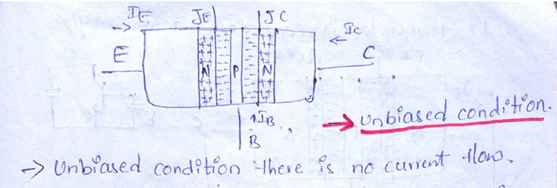 IE JE JC IC
E N P N C
IB
B
→ Unbiased condition.
→ Unbiased condition there is no current flow.